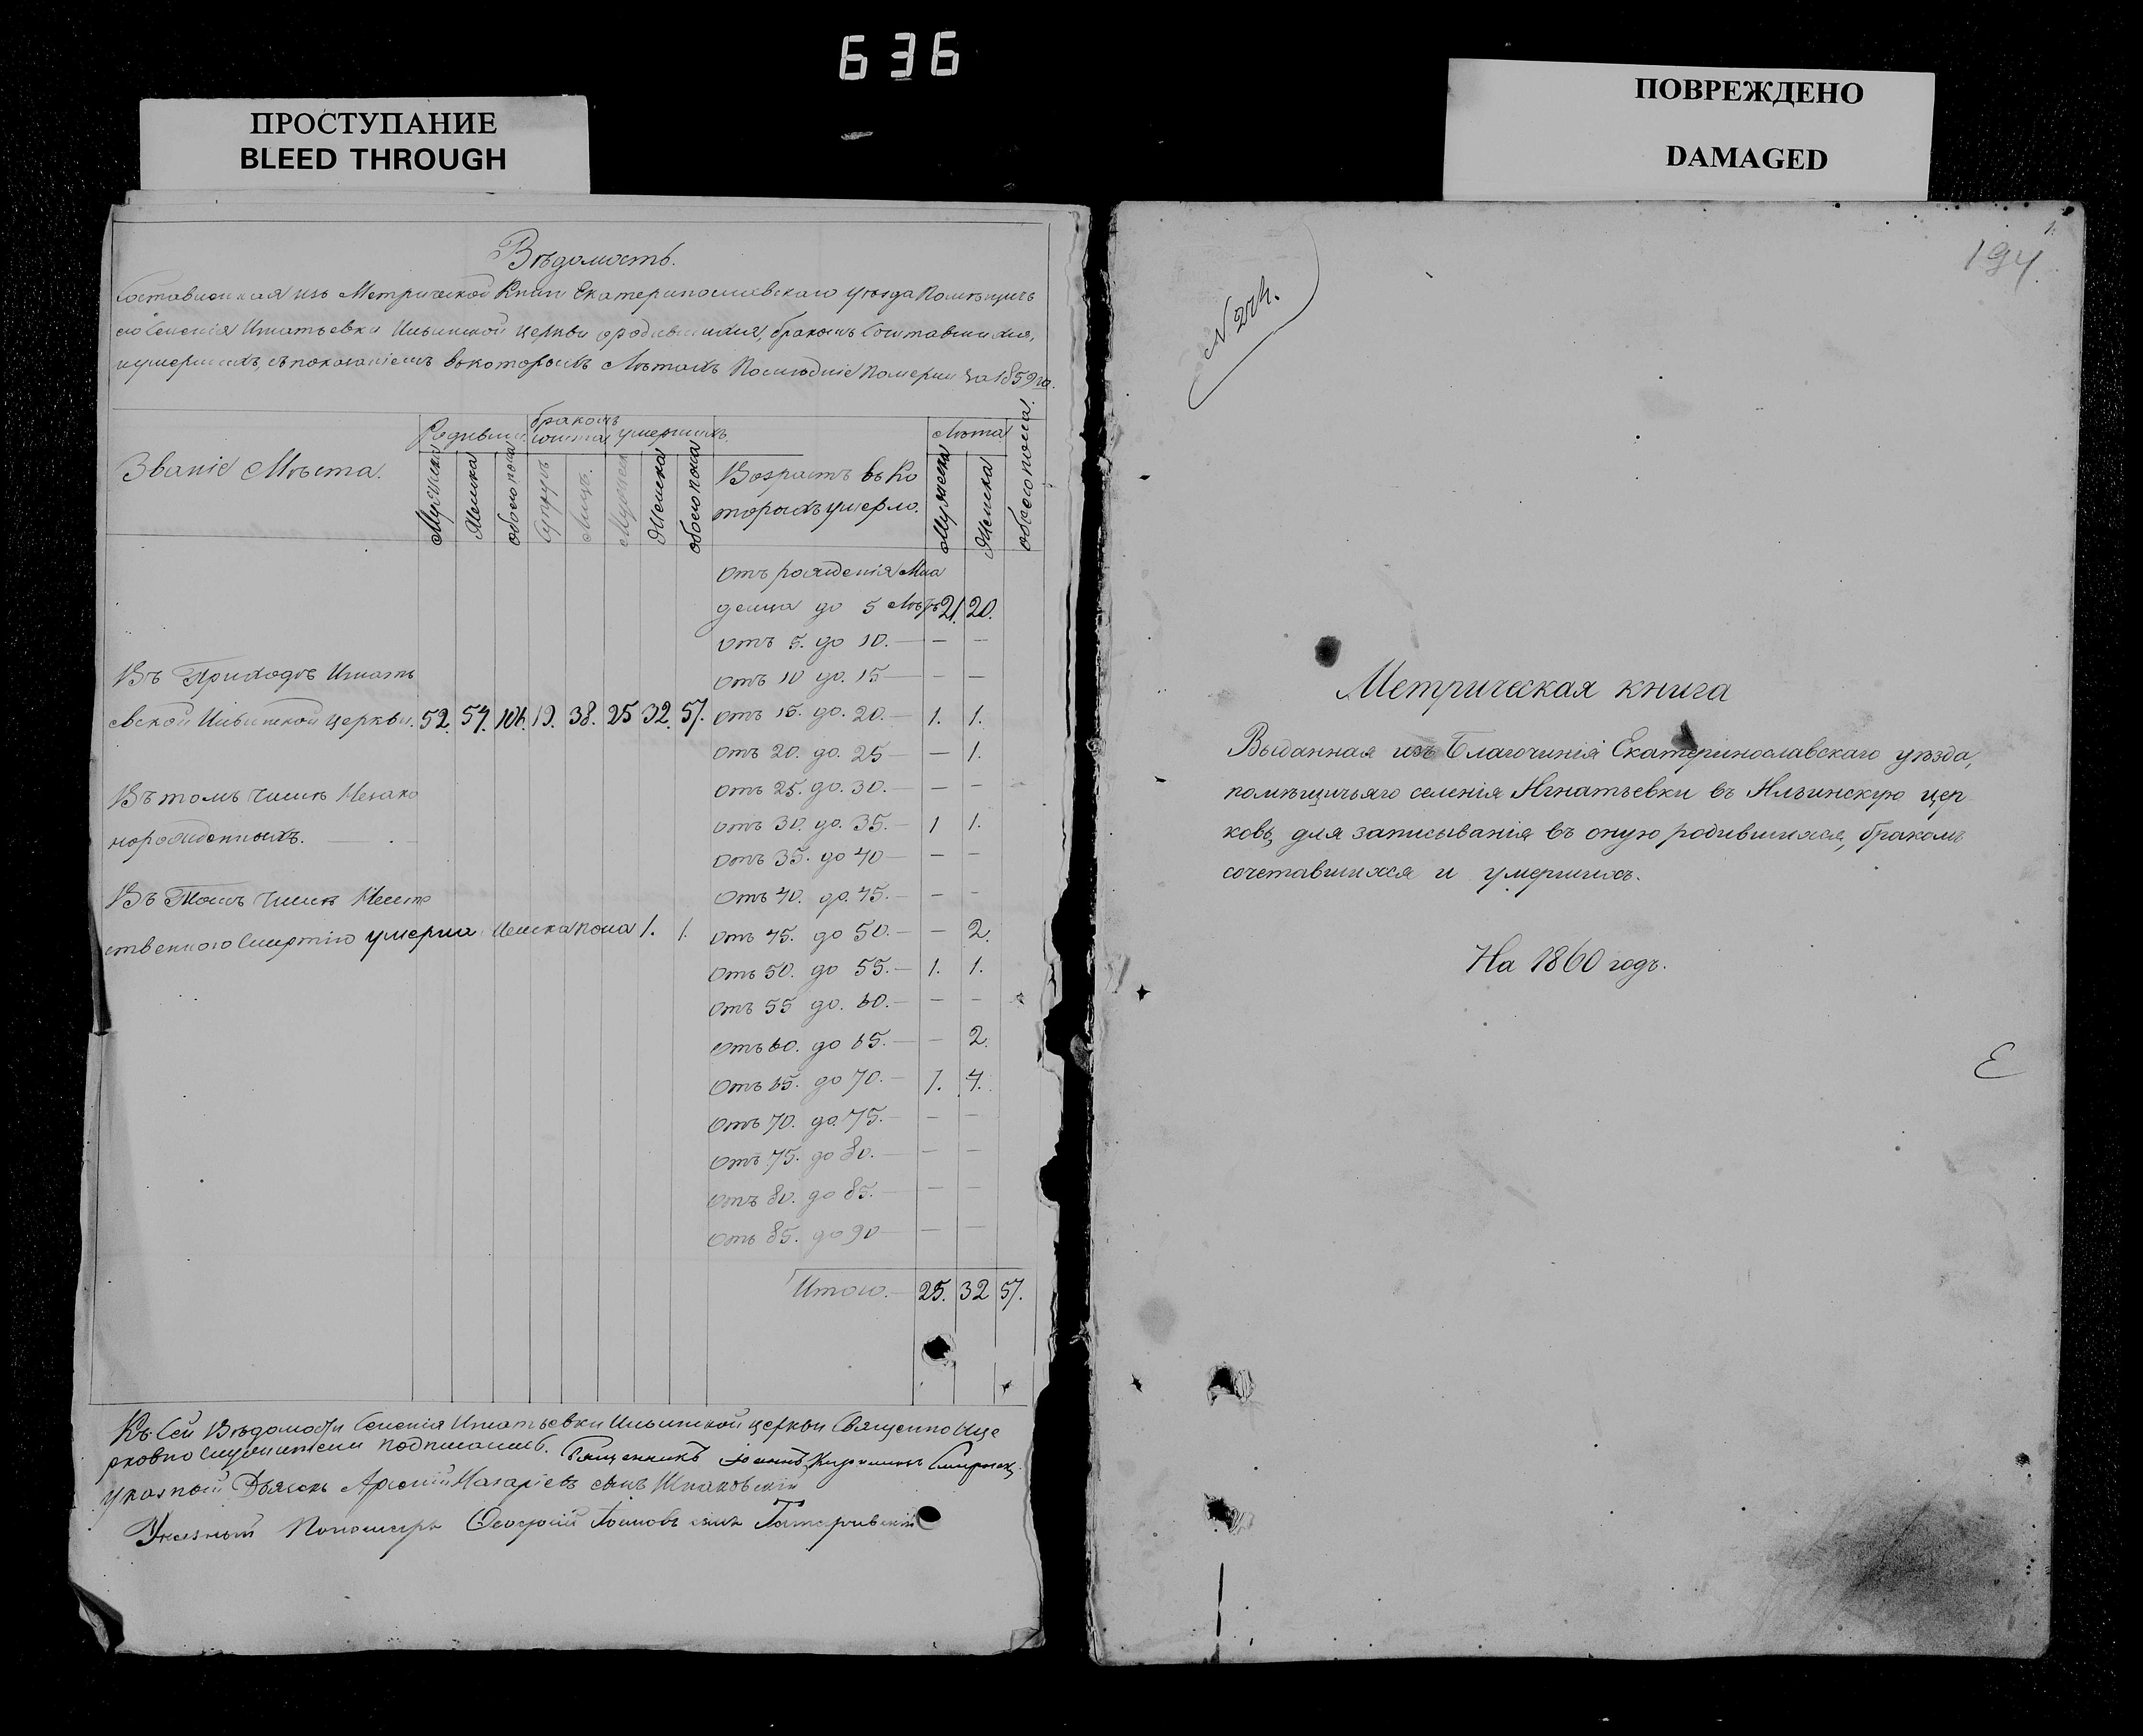 636
ПРОСТУПАНИЕ
BLEED THROUGH
ПОВРЕЖДЕНО
DAMAGED
Вѣдомость.
Составленная изъ Метрической Книги Екатеринославскаго уѣзда Помѣщичь
яго Селенія Игнатьевки Ильинской церкви о родившихся, бракомъ Сочетавшихся,
и умершихъ, съ показаніемъ въ которыхъ Лѣтахъ Послѣдніе Померли за 1859 го.
Званіе Мѣста.
Родивших
бракомъ
сочета
умершихъ.
Возрастъ въ Ко
торыхъ умерло.
Лѣта
Мужеска
Женска
обоего пола
Супруж
Лицъ.
Мужеска
Женска
обоего пола
Мужеска
Женска
обоего пола.
Отъ рожденія Мла
денца до 5 Лѣтъ 21. 20.
Отъ 5. до 10. — — —
Въ Приходѣ Игнать
Отъ 10 до. 15 — — —
евской Ильинской церкви. 52. 54. 106. 19. 38. 25 32. 57. Отъ 15. до. 20. — 1. 1.
Отъ 20. до. 25 — — 1.
Въ томъ числѣ Незако
Отъ 25. до. 30. — — —
Отъ 30. до. 35. — 1 1.
норожденныхъ. — . —
Отъ 35. до 40 — — —
Въ Томъ числѣ Неесте
Отъ 40. до. 45. — — —
ственною Смертію умерла Женска пола 1. 1. Отъ 45. до 50. — — 2.
Отъ 50. до 55. — 1. 1.
Отъ 55 до. 60. — — —
Отъ 60. до 65. — — 2.
Отъ 65. до 70. — 1. 4.
Отъ 70. до 75. — — —
Отъ 75. до 80. — — —
Отъ 80. до 85. — — —
Отъ 85. до 90 — — —
Итого. — 25. 32 57.
Къ Сей Вѣдомости Селенія Игнатьевки Ильинской церкви Священно и Це
рковно Служители подписались. Священникъ Іоаннъ
Указной Дьячекъ Арсеній Назаріевъ сынъ Шпаковскій
Указный Пономарь сынъ
1.
194.
N 204.
Метрическая книга
Выданная изъ Благочинія Екатеринославскаго уѣзда,
помѣщичьяго селенія Игнатьевки въ Ильинскую цер
ковь, для записыванія въ оную родившихся, бракомъ
сочетавшихся и умершихъ.
На 1860 годъ.